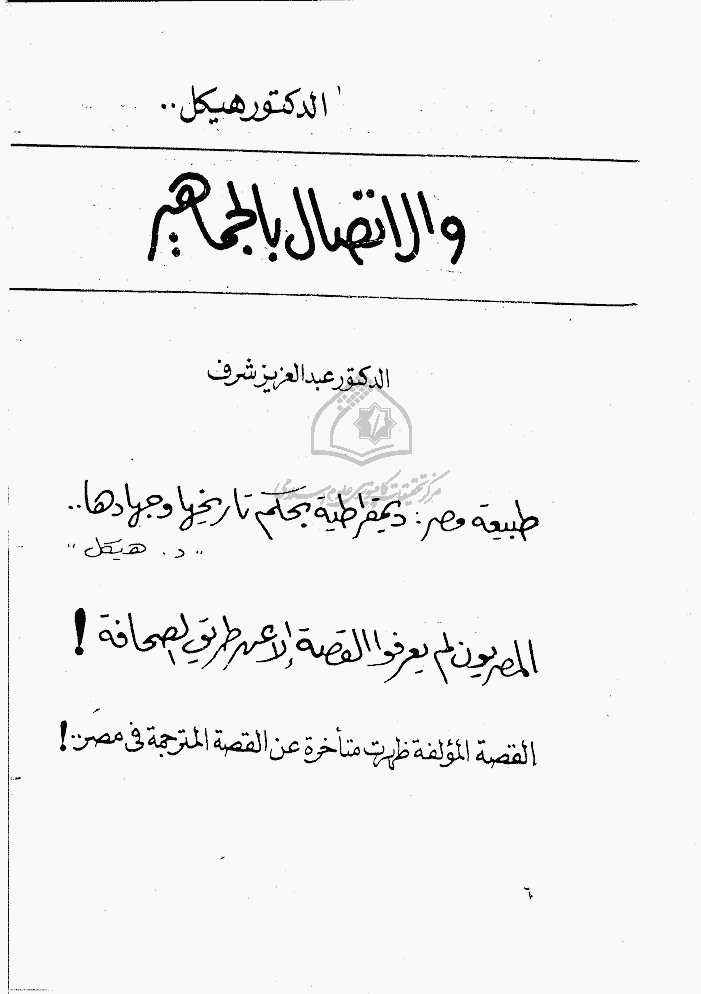 الدكتور هيكل..
والاتصال بالجماهير
الدكتور عبد العزيز شرف
مركز تحقيقات كامپيوتري علوم اسلامي
طبيعة مصر: ديمقراطية بحكم تاريخها وجهادها..
"د. هيكل"
المصريون لم يعرفوا القصة إلا عن طريق الصحافة!
القصة المؤلفة ظهرت متأخرة عن القصة المترجمة فى مصر..!
٦